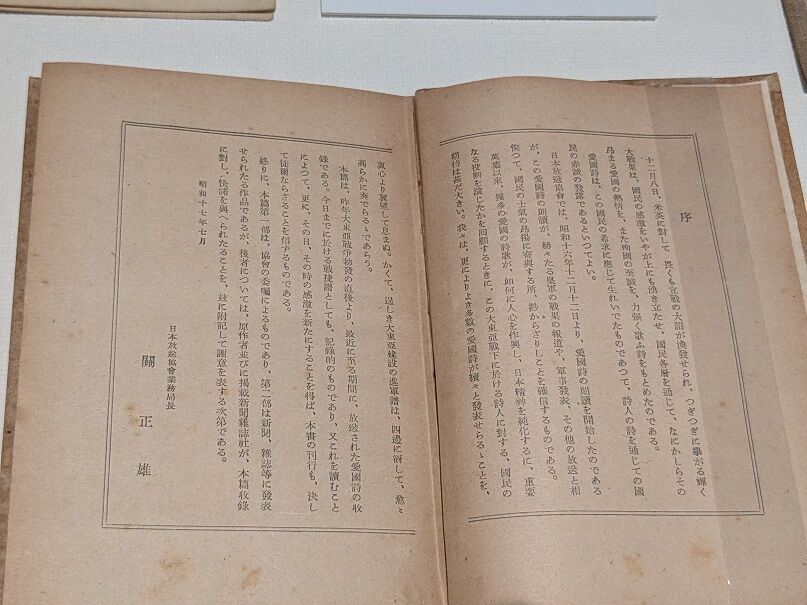 序
十二月八日、米英に對して　畏くも宣戰の大詔が渙發せられ、つぎつぎに擧がる輝く
大戰果は、國民の感激をいやが上にも湧き立たせ、國民各層を通じて、なにかしらその
昂まる愛國の熱情を、また殉國の至誠を、力强く歌ふ詩をもとめたのである。
愛國詩は、この國民の希求に應じて生れいでたものであつて、詩人の詩を通じての國
民の赤誠の發露であるといつてよい。
日本放送協會では、昭和十六年十二月十二日より、愛國詩の朗讀を開始したのである
が、この愛國詩の朗讀が、赫々たる皇軍の戰果の報道や、軍事發表、その他の放送と相
俟つて、國民の士氣の昂揚に寄與する所、尠からざりしことを確信するものである。
萬葉以來、幾多の愛國の詩歌が、如何に人心を作興し、日本精神を純化するに、重要
なる役割を演じたかを囘顧するときに、この大東亞戰下に於ける詩人に對する、國民の
期待は甚だ大きい。我々は、更によりよき多數の愛國詩が續々と發表せらるゝことを、
衷心より冀望して息まぬ。かくて、逞しき大東亞建設の進軍譜は、四邊に谺して、愈々
高らかに奏でらるゝであらう。
本篇は、昨年大東亞戰爭勃發の直後より、最近に至る期間に、放送された愛國詩の收
錄である。今日までに於ける戰捷譜としても、記錄的のものであり、又これを讀むこと
によつて、更に、その日、その時の感激を新たにすることを得ば、本書の刊行も、決し
て徒爾ならざることを信ずるものである。
終りに、本篇第一部は、協會の委囑によるものであり、第二部は新聞、雜誌等に發表
せられたる作品であるが、後者については、原作者並びに揭載新聞雜誌社が、本篇收錄
に對し、快諾を與へられたることを、玆に附記して謝意を表する次第である。
昭和十七年七月
日本放送協會業務局長
關　正　雄